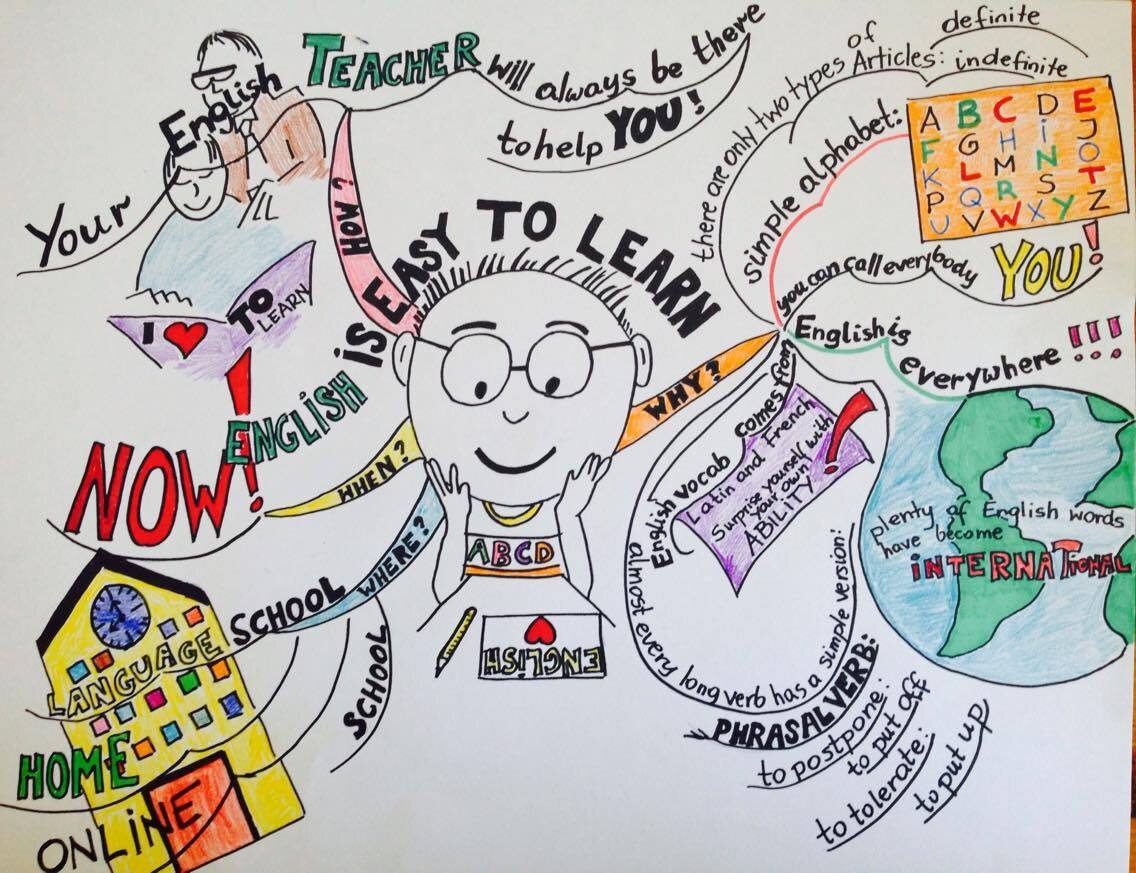 ENGLISH iS EASY TO LEARN
HOW?
Your English TEACHER will always be there
to help YOU!
I ❤ TO LEARN
WHEN?
NOW!
WHERE?
SCHOOL
LANGUAGE SCHOOL
HOME
ONLiNE
WHY?
there are only two types of Articles:
definite
indefinite
simple alphabet:
A B C D E
F G H i J
K L M N O
P Q R S T
U V W X Y Z
you can call everybody YOU!
English is everywhere!!!
plenty of English words
have become
iNTERNATiONAL
English vocab comes from
Latin and French
Surprise yourself with
your own
ABILITY!
almost every long verb has a simple version:
PHRASAL VERB:
to postpone:
to put off
to tolerate:
to put up
ABCD
ENGLiSH